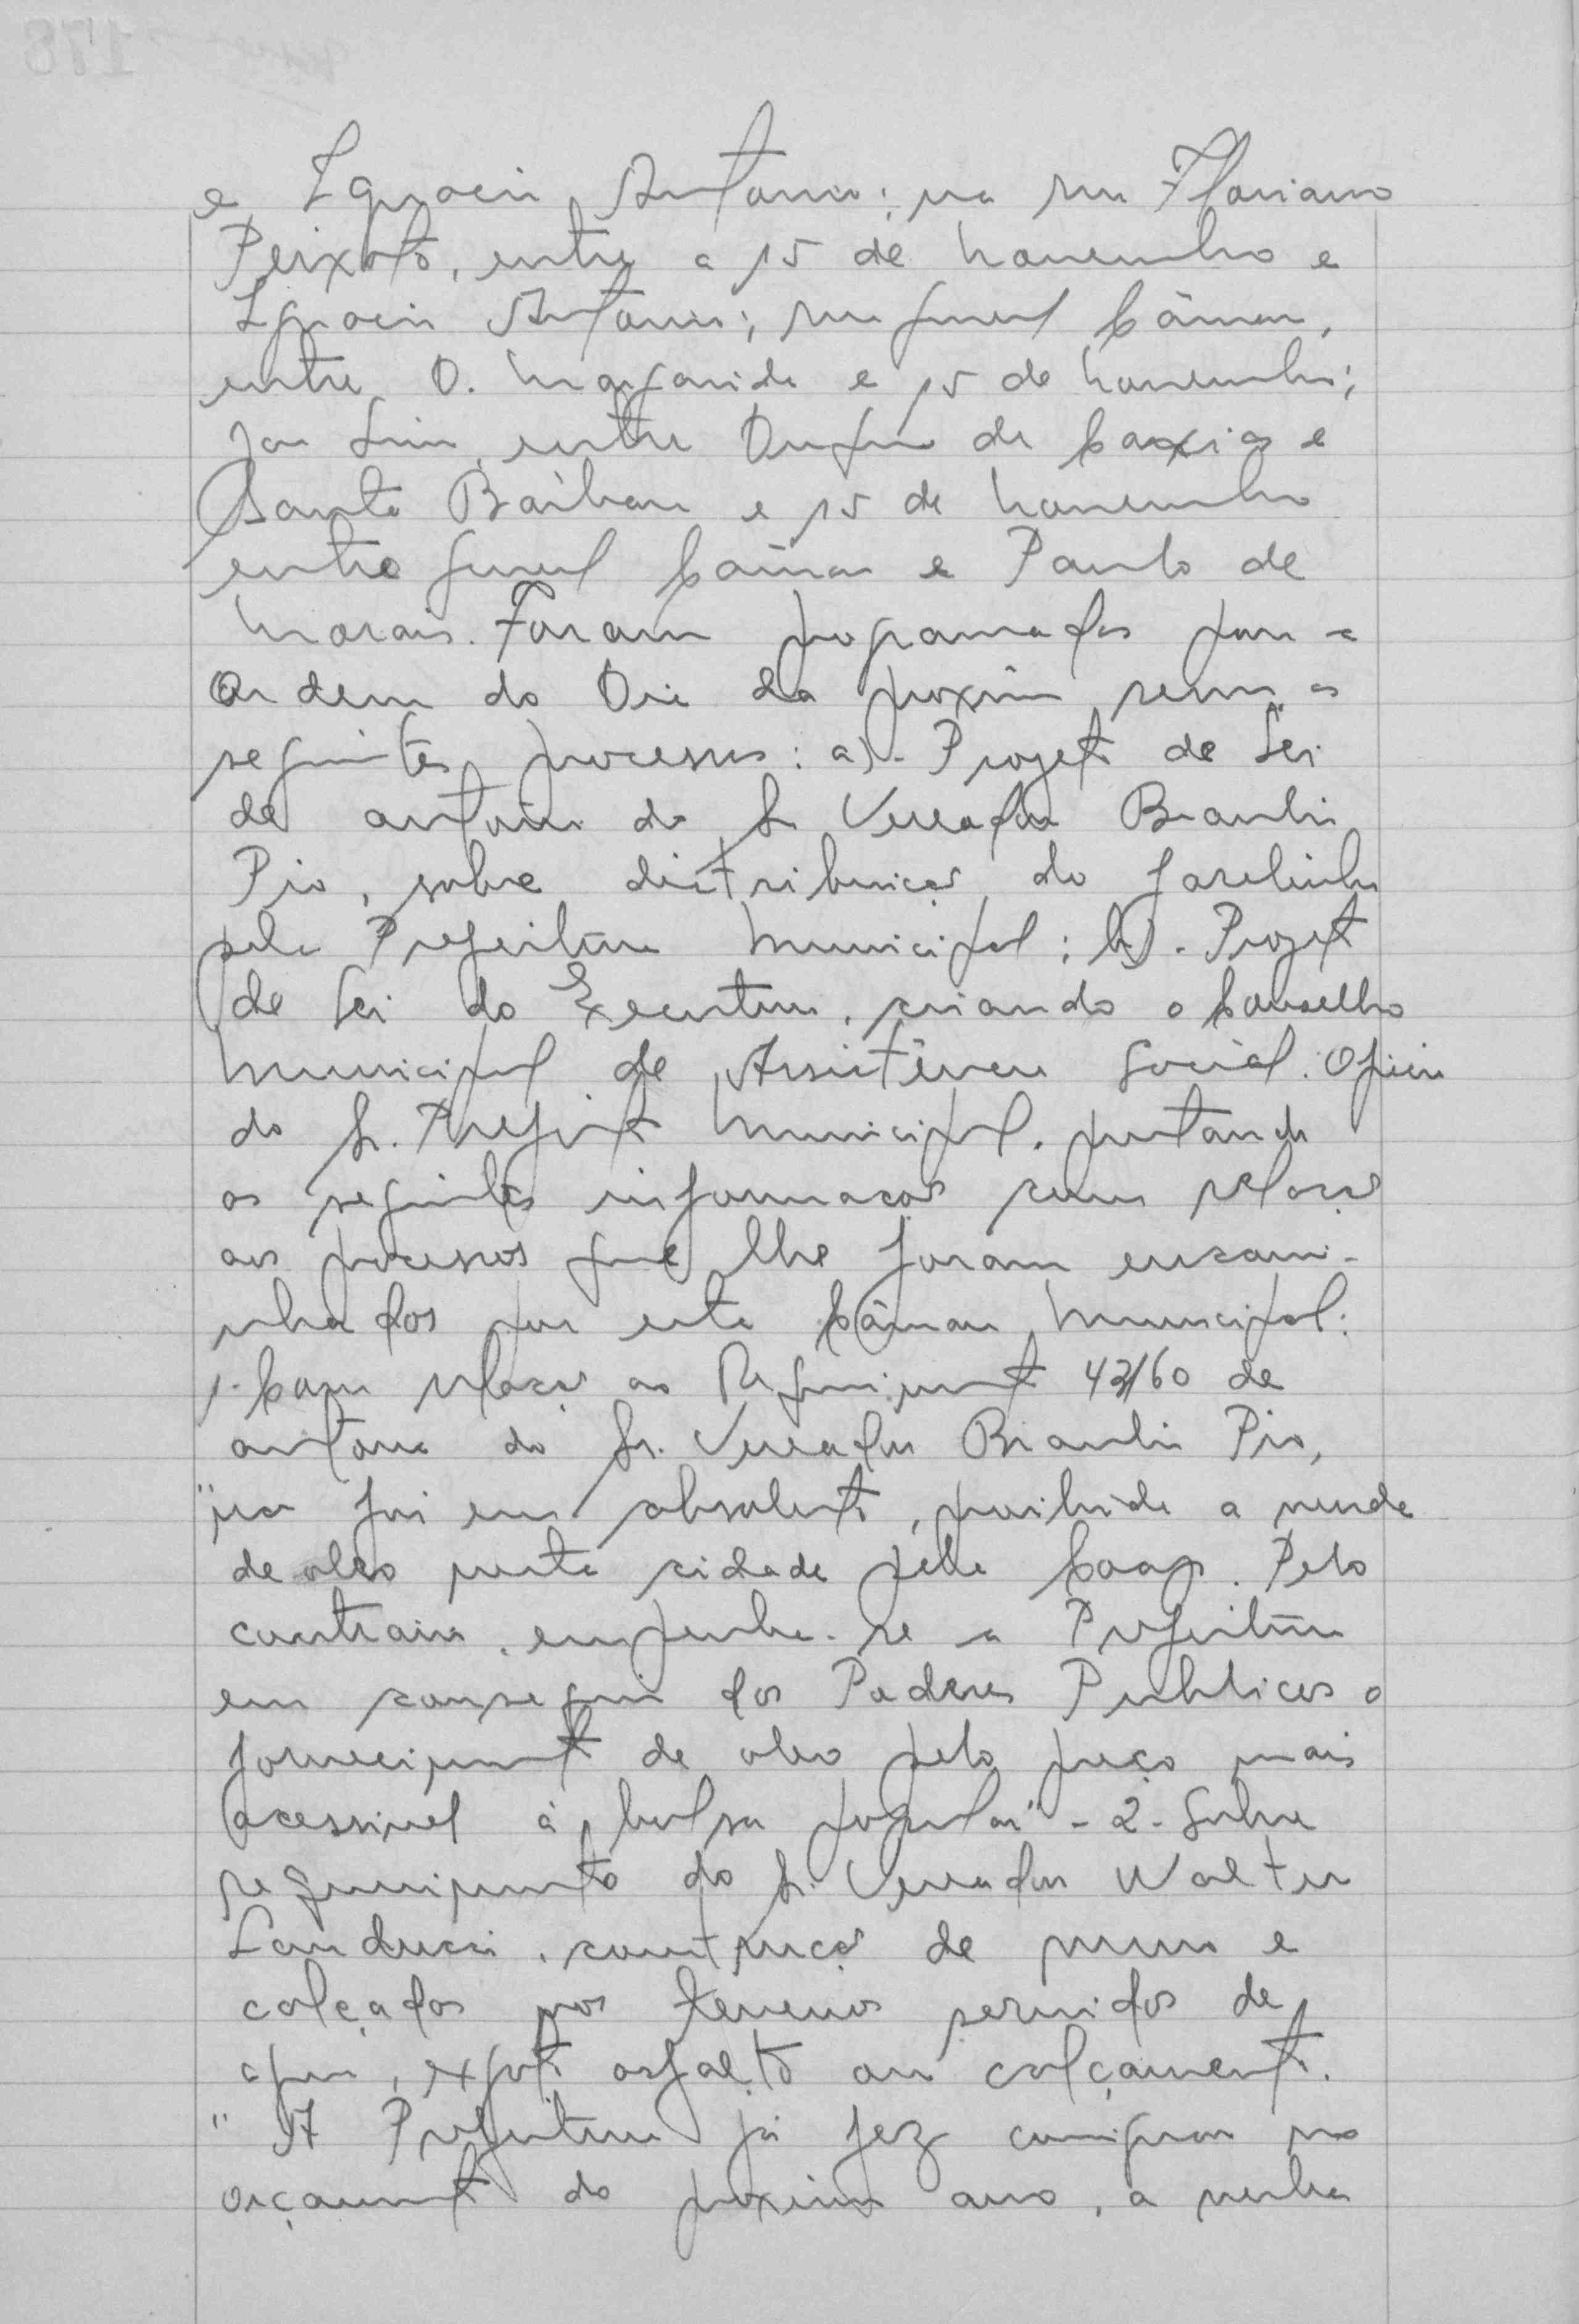 e Ignacio Antonio; na rua Floriano
Peixoto, entre a 15 de Novembro e
Ignacio Antonio; rua General Câmara,
entre D. Margarida e 15 de Novembro;
José Luiz, entre Duque de Caxias e
Santa Bárbara e 15 de Novembro
entre General Câmara e Paulo de
Morais. Foram programados para a
Ordem do Dia da proxima reunião os
seguintes processos: a)- Projeto de Lei
de autoria do Sr Vereador Braulio
Pio, sobre distribuição do farelinho
pela Prefeitura Municipal; b)- Projeto
de Lei do Executivo, criando o Conselho
Municipal de Assistência Social. Oficio
do Sr. Prefeito Municipal, prestando
as seguintes informações com relação
aos processos que lhe foram encami-
nhados por esta Câmara Municipal:
1- Com relação ao Requerimento 43/60 de
autoria do Sr. Vereador Braulio Pio,
"não foi em absoluto, proibida a venda
de oleo nesta cidade pela Coap. Pelo
contrario, empenha-se a Prefeitura
em conseguir dos Poderes Publicos o
fornecimento de oleo pelo preço mais
acessivel à bolsa popular" - 2- Sobre
requerimento do Sr. Vereador Walter
Landucci, construção de muros e
calçadas nos terrenos servidos de
agua, exgoto asfalto ou calçamento.
"A Prefeitura já fez consignar no
orçamento do proximo ano, a verba